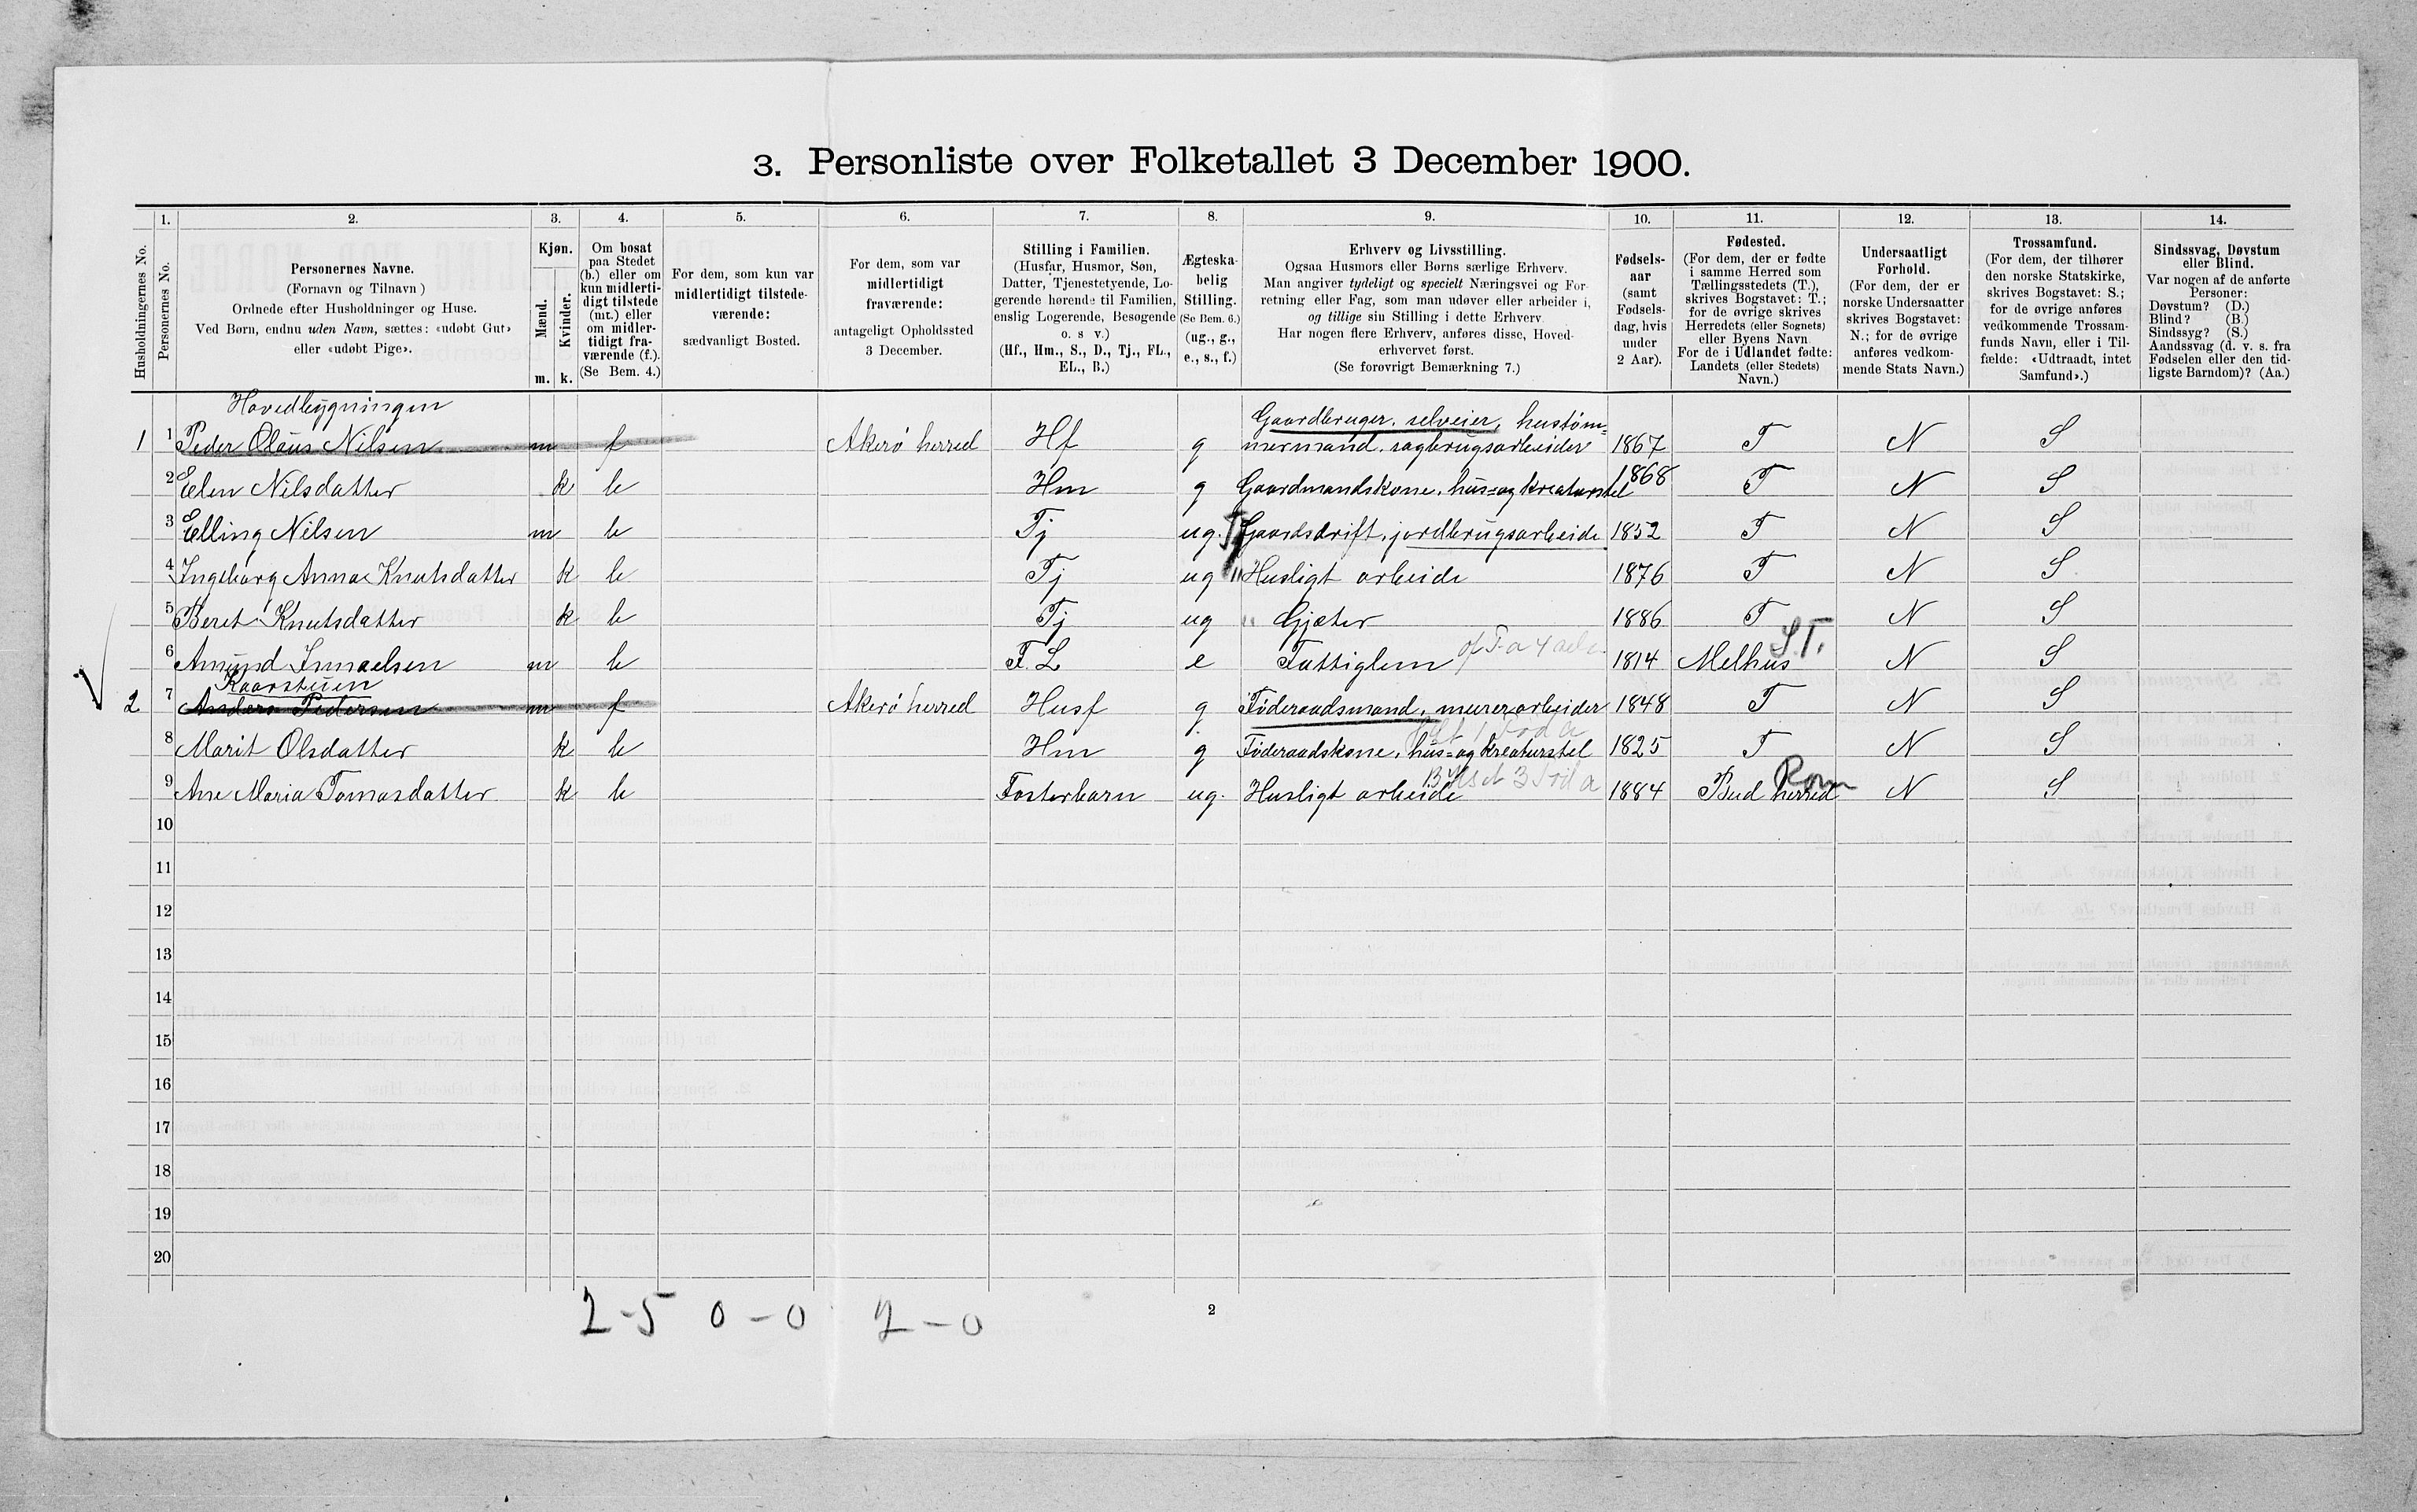 3. Personliste over Folketallet 3 December 1900.
1. 2. 3. 4. 5. 6. 7. 8. 9. 10. 11. 12. 13. 14.
Husholdningernes No.
Personernes No.
Personernes Navne.
(Fornavn og Tilnavn )
Ordnede efter Husholdninger og Huse.
Ved Børn, endnu uden Navn, sættes: «udøbt Gut»
eller «udøbt Pige».
Kjøn.
Mænd.
Kvinder.
m. k.
Om bosat
paa Stedet
(b.) eller om
kun midlerti-
digt tilstede
(mt.) eller
om midler-
tidigt fra-
værende (f.).
(Se Bem. 4.)
For dem, som kun var
midlertidigt tilstede-
værende:
sædvanligt Bosted.
For dem, som var
midlertidigt
fraværende:
antageligt Opholdssted
3 December.
Stilling i Familien.
(Husfar, Husmor, Søn,
Datter, Tjenestetyende, Lo-
gerende hørende til Familien,
enslig Logerende, Besøgende
o. s v.)
(Hf., Hm., S., D., Tj., FL.,
EL., B.)
Ægteska-
belig
Stilling.
(Se Bem. 6.)
(ug., g.,
e., s., f.)
Erhverv og Livsstilling.
Ogsaa Husmors eller Børns særlige Erhverv.
Man angiver tydeligt og specielt Næringsvei og For-
retning eller Fag, som man udøver eller arbeider i,
og tillige sin Stilling i dette Erhverv
Har nogen flere Erhverv, anføres disse, Hoved-
erhvervet først.
(Se forøvrigt Bemærkning 7.)
Fødsels-
aar
(samt
Fødsels-
dag, hvis
under
2 Aar).
Fødested.
(For dem, der er fødte
i samme Herred som
Tællingsstedets (T.),
skrives Bogstavet: T.;
for de øvrige skrives
Herredets (eller Sognets)
eller Byens Navn
For de i Udlandet fødte:
Landets (eller Stedets)
Navn.)
Undersaatligt
Forhold.
(For dem, der er
norske Undersaatter
skrives Bogstavet:
N.; for de øvrige
anføres vedkom-
mende Stats Navn.)
Trossamfund.
(For dem, der tilhører
den norske Statskirke,
skrives Bogstavet: S.;
for de øvrige anføres
vedkommende Trossam-
funds Navn, eller i Til-
fælde: «Udtraadt, intet
Samfund».)
Sindssvag, Døvstum
eller Blind.
Var nogen af de anførte
Personer:
Døvstum? (D.)
Blind? (B.)
Sindssyg? (S.)
Aandssvag (d. v. s. fra
Fødselen eller den tid-
ligste Barndom)? (Aa.)
Hovedbygningen
Gaardbruger, selveier, hustøm=
1 1 Peder Olaus Nilsen m f Akerø herred Hf g mermand, sagbrugsarbeider 1867 T N S
2 Elen Nilsdatter k b Hm g Gaardmandskone, hus=og kreaturstel 1868 T N S
3 Elling Nilsen m b Tj ug. Gaardsdrift, jordbrugsarbeide 1852 T N S
4 Ingeborg Anna Knutsdatter k b Tj ug " Husligt arbeide 1876 T N S
5 Beret Knutsdatter k b Tj ug " Gjæter 1886 T N S
S.T.
6 Amund Ismaelsen m b F. L e Fattiglem 1814 Melhus N S
Kaarstuen
2 7 Anders Pedersen m f Akerø herred Husf g. Føderaadsmand, murerarbeider 1848 T N S
8 Marit Olsdatter k b Hm g Føderaadskone, hus=og kreaturstel 1825 T N S
Rom
9 Ane Maria Tomasdatter k b Fosterbarn ug. Husligt arbeide 1884 Bud herred N S
10
11
12
13
14
15
16
17
18
19
20
2-5 0-0 2-0
2